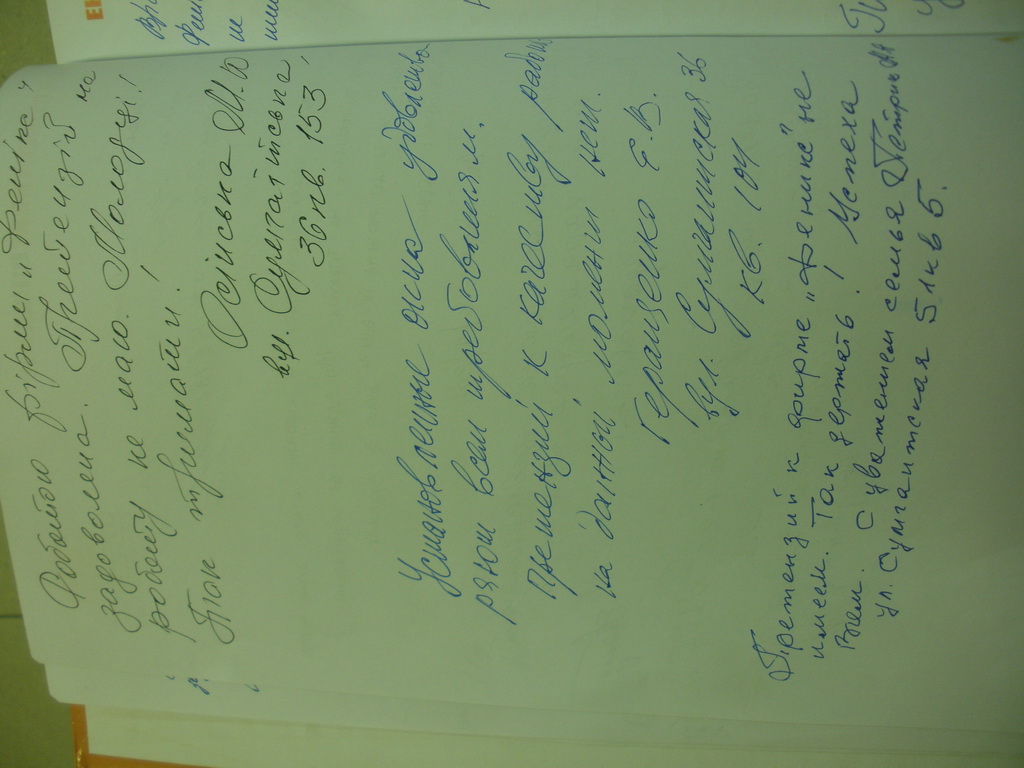 Роботою фірми „Фенікс"
задоволена. Претензій на
роботу не маю. Молодці!
Так тримати!
Осінська М.Ю
вул. Сумгаїтська,
36 кв. 153
Установленные окна удовлетво
ряют всем требованиям.
Претензий к качеству работы
на данный момент нет.
Геращенко Е.В.
вул. Сумгаитская 36
кв. 104
Претензий к фирме „Феникс" не
имеем. Так держать! Успеха
Вам. С уважением семья
ул. Сумгаитская 51 кв 5.